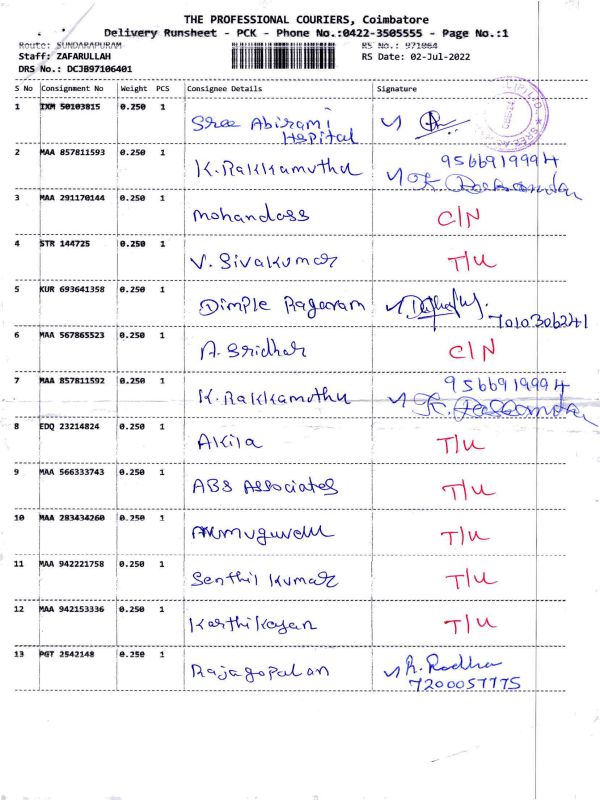 THE PROFESSIONAL COURIERS, Coimbatore
Delivery Runsheet - PCK - Phone No.:0422-3505555 - Page No.:1
Route: SUNDARAPURAM RS No.: 971064
Staff: ZAFARULLAH RS Date: 02-Jul-2022
DRS No.: DCJB97106401
S No Consignment No Weight PCS Consignee Details Signature
1 IXM 50103815 0.250 1 Sree Abirami
Hspital
2 MAA 857811593 0.250 1 K.Rakkamuthu 9566919994
OK
3 MAA 291170144 0.250 1 Mohandass C/N
4 STR 144725 0.250 1 V. Sivakumar T/U
5 KUR 693641358 0.250 1 Dimple Ragavam
7010306241
6 MAA 567865523 0.250 1 A. Sridhar C/N
7 MAA 857811592 0.250 1 K. Rakkamuthu 9566919994
8 EDQ 23214824 0.250 1 Akila T/U
9 MAA 566333743 0.250 1 ABS Associates T/U
10 MAA 283434260 0.250 1 T/U
11 MAA 942221758 0.250 1 Senthil Kumar T/U
12 MAA 942153336 0.250 1 Karthikeyan T/U
13 PGT 2542148 0.250 1 Rajagopalan R. Radha
7200057775